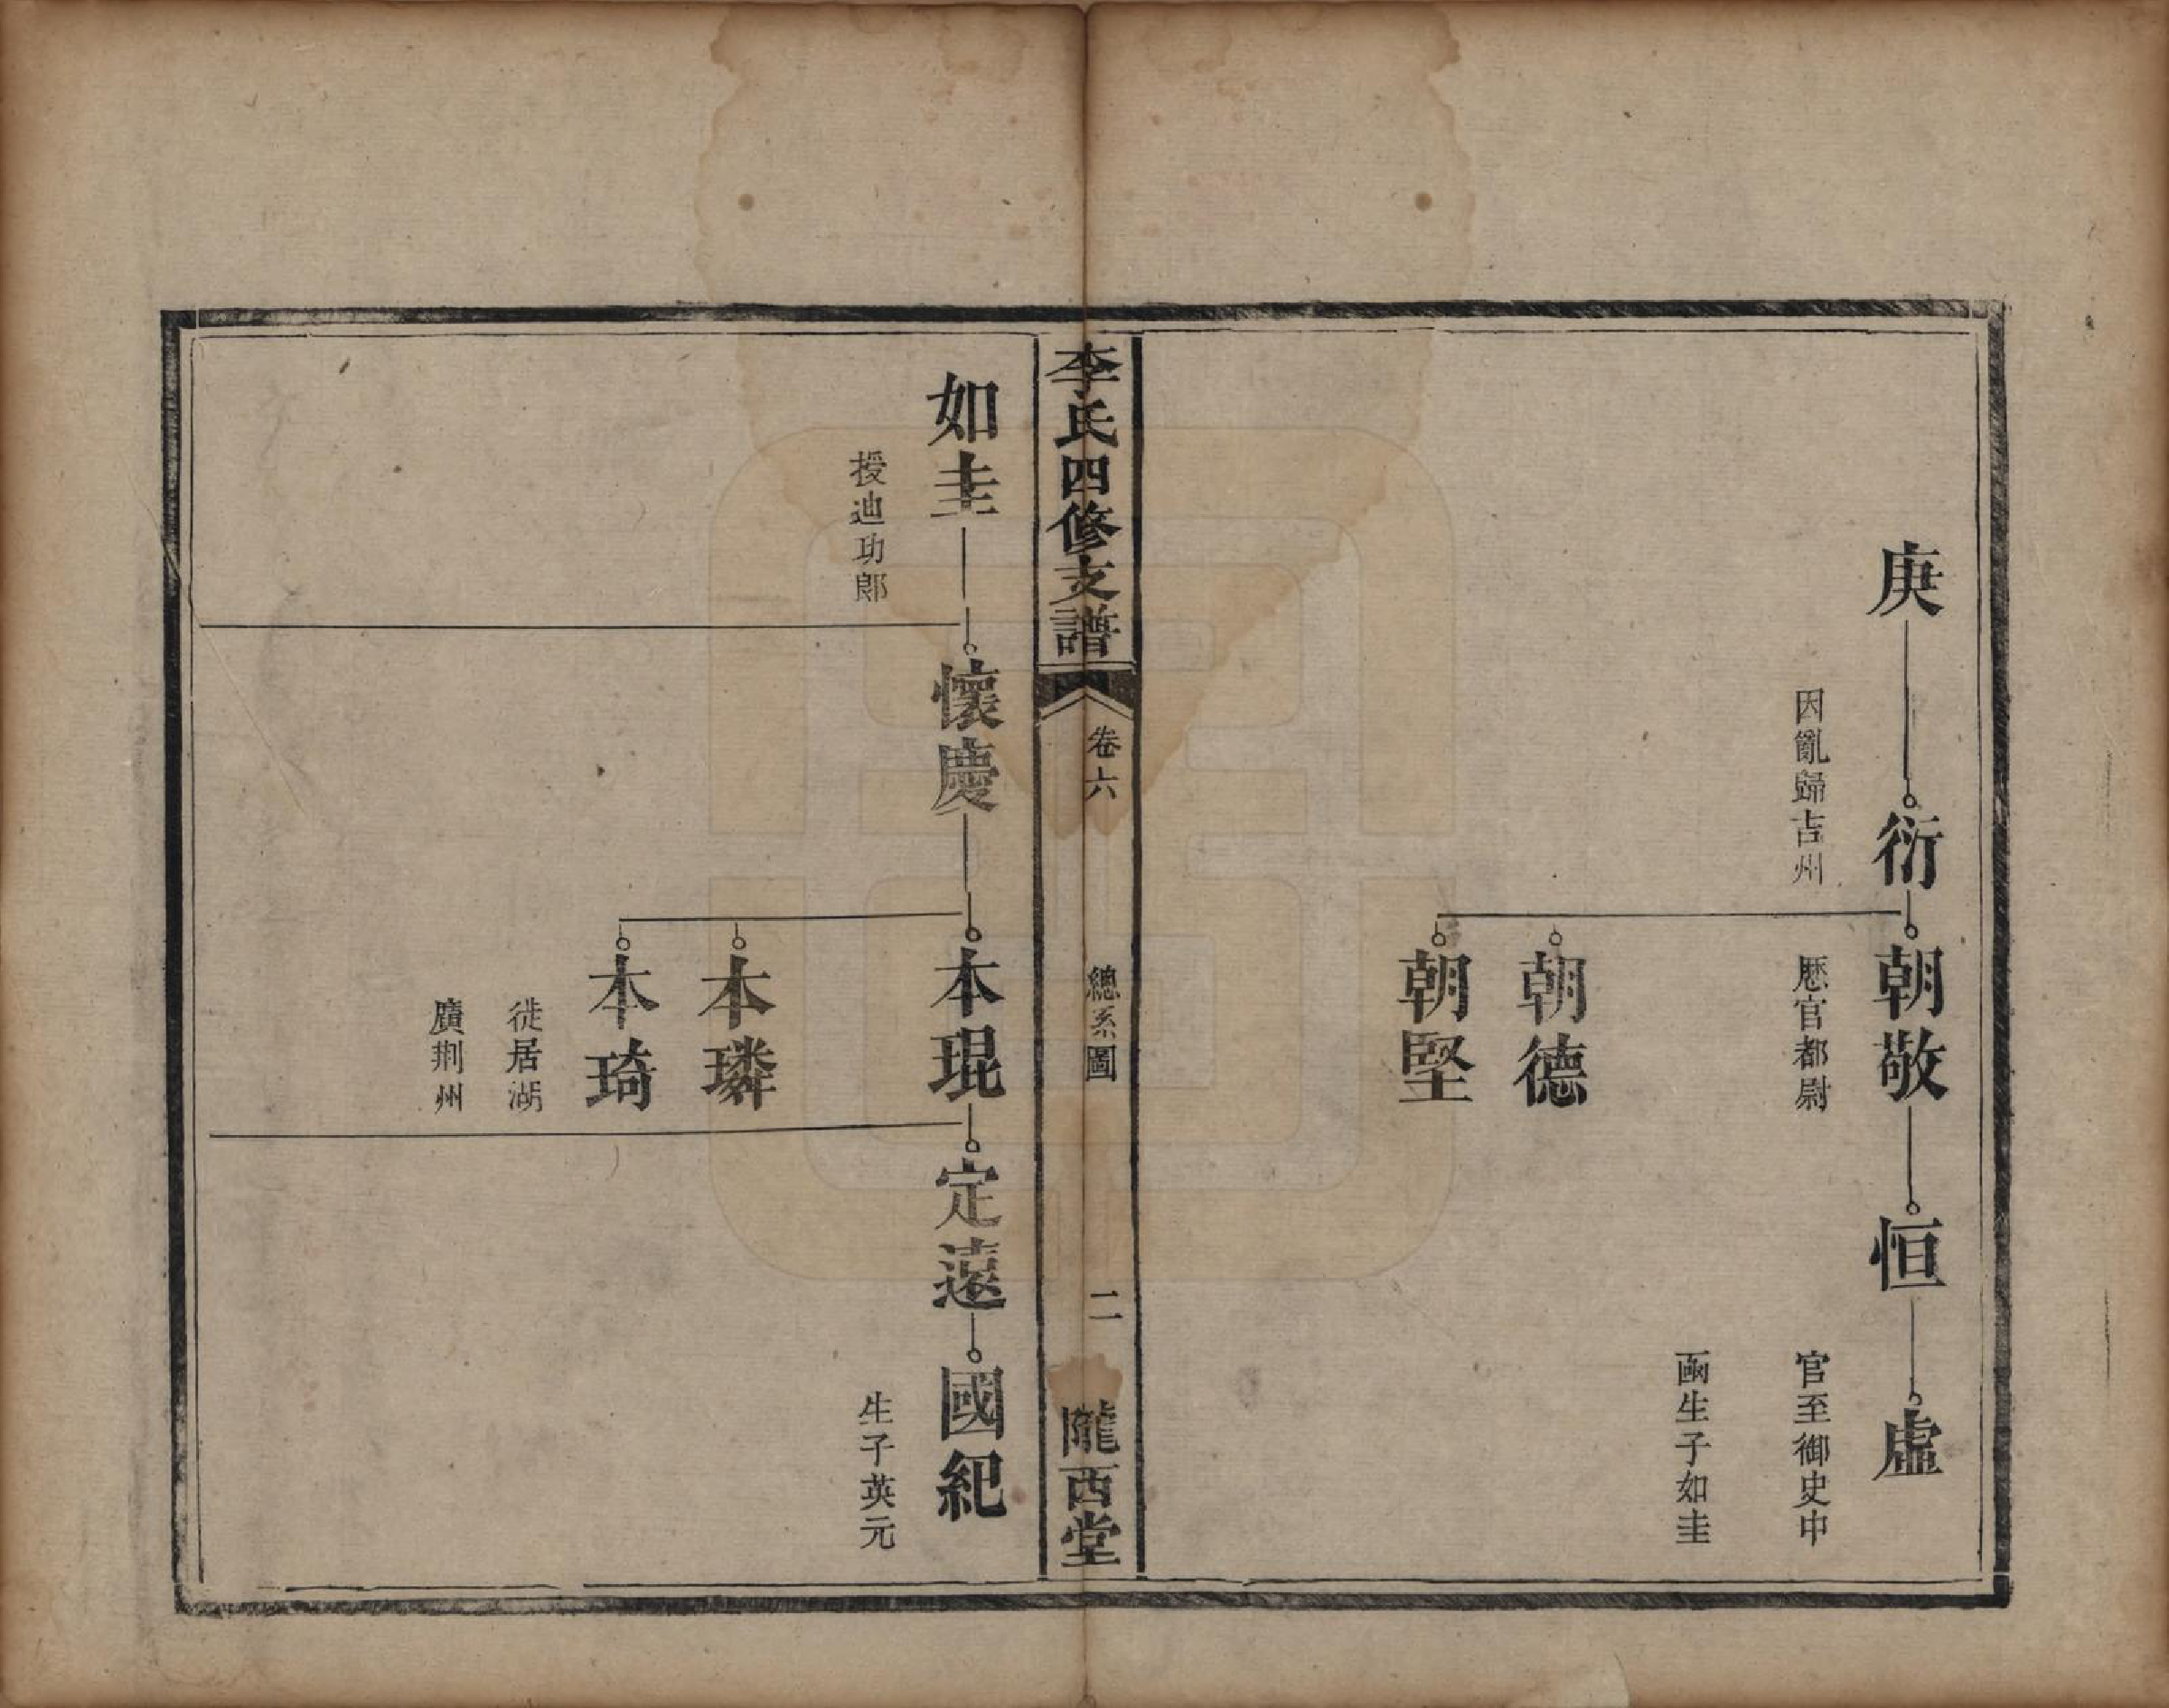 庚
衍
因亂歸吉州
朝敬
歷官都尉
朝德
朝堅
恒
虛
官至御史中
凾生子如圭
李氏四修支譜
卷六
總系圖
二
隴西堂
如圭
授迪功郎
懷慶
本琨
本璘
本琦
徙居湖
廣荆州
定遠
國紀
生子英元